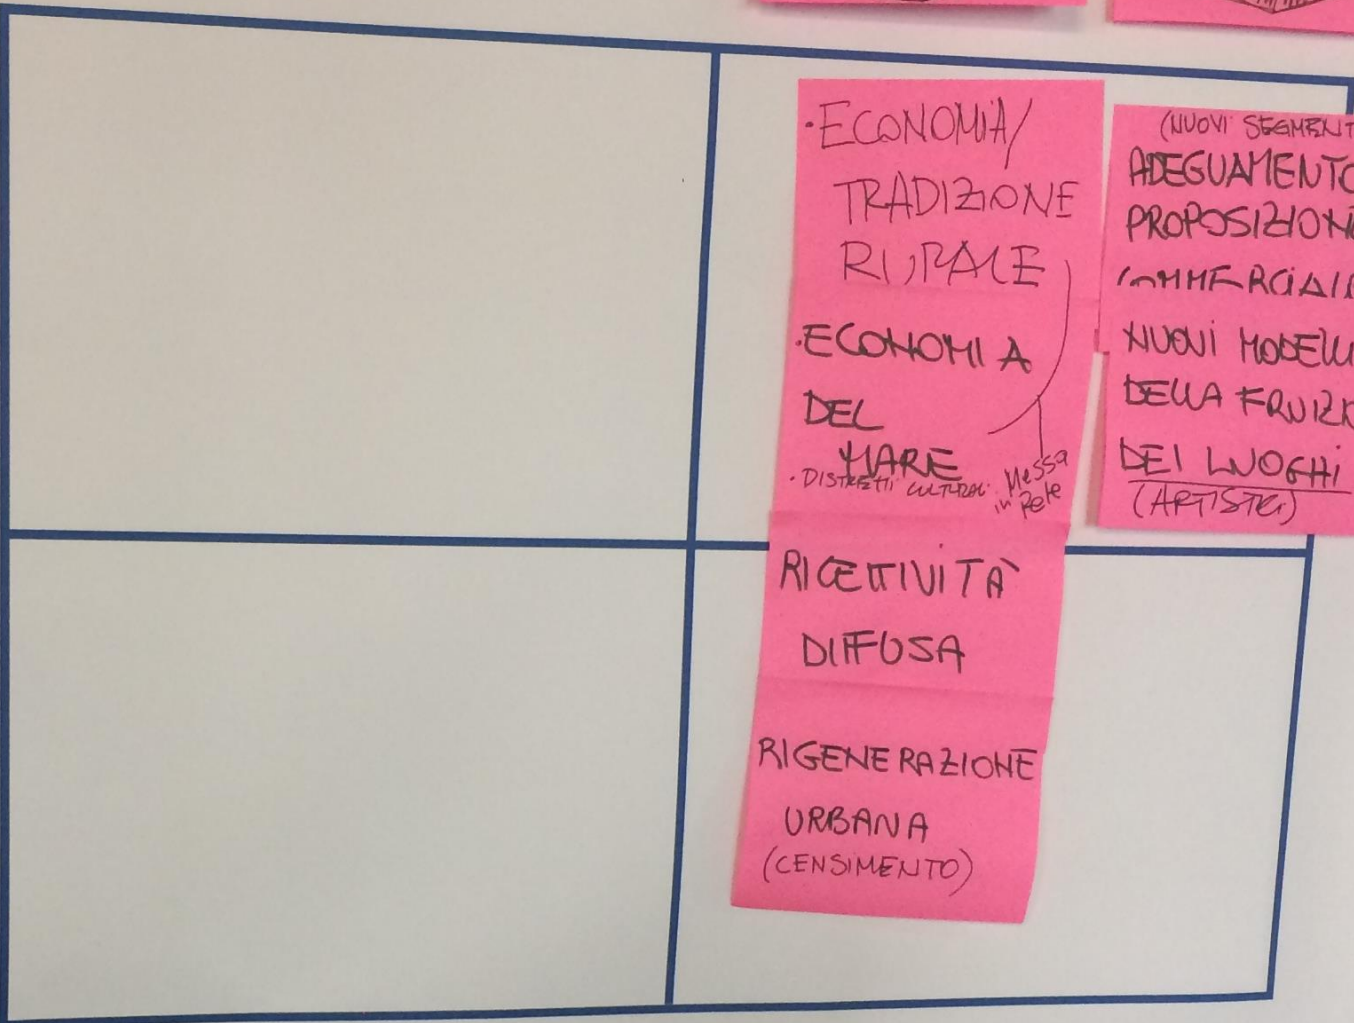 ·ECONOMIA/
TRADIZIONE
RURALE
·ECONOMIA
DEL
MARE
·DISTRETTI CULTURALI
Messa
in Rete
RICETTIVITÀ
DIFFUSA
RIGENERAZIONE
URBANA
(CENSIMENTO)
(NUOVI SEGMENT
ADEGUAMENTO
PROPOSIZION
COMMERCIAL
NUOVI MODELLI
DELLA FRUIZI
DEI LUOGHI
(ARTISTICI)